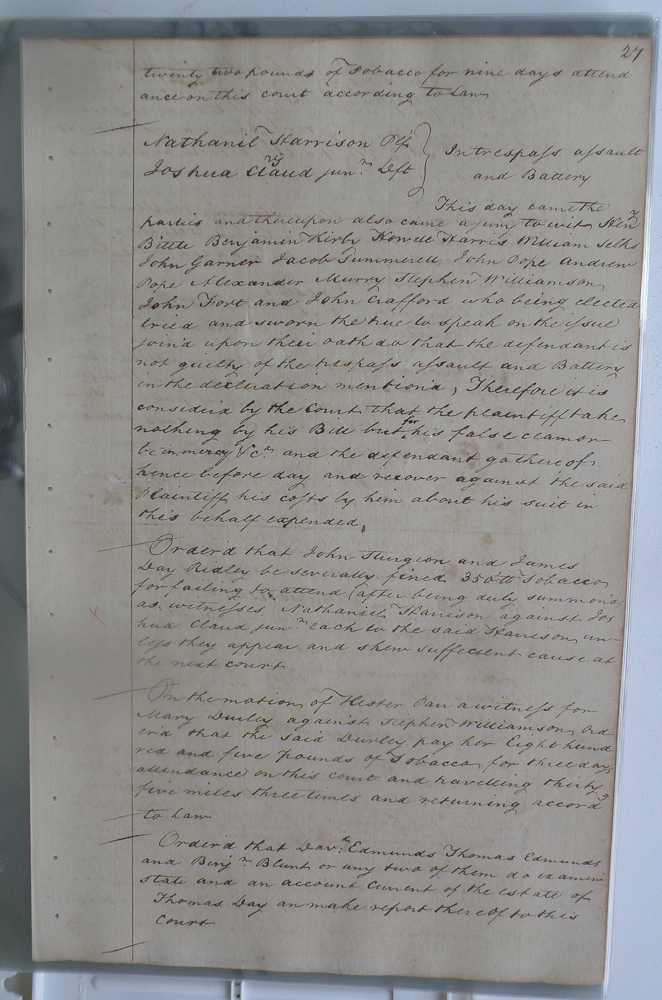 27
twenty two pounds of Tobacco for nine days attend
ance on this court according to Law
Nathaniel Harrison Plt
Joshua Claud junr. Deft
In trespass assault
and Battery
This day came the
parties and thereupon also came a jury to wit
Bittle Benjamin Kirby Howell Harris William Selks
John Garner Jacob Summerell John Pope Andrew
Pope Alexander Murry Stephen Williamson
John Fort and John Crafford who being elected
tried and sworn the true to speak on the issue
join'd upon their oath do that the defendant is
not guilty of the trespass assault and Battery
in the declaration mention'd, Therefore it is
consider'd by the Court that the plaintiff take
nothing by his Bill but for his false clamor
be in mercy &c. and the defendant go thereof
hence before day and recover against the said
Plaintiff his costs by him about his suit in
this behalf expended,
Order'd that John Sturgeon and James
Day Ridley be severally fined 350 lb Tobacco
for failing to attend (after being duly summon'd
as witnesses Nathaniel Harrison against Jos
hua Claud junr. each to the said Harrison un-
less they appear and shew sufficient cause at
the next court
On the motion of Hester a witness for
Mary Durley against Stephen Williamson Ord
er'd that the said Durley pay her Eight hund
red and five pounds of Tobacco for three days
attendance on this court and travelling thirty
five miles three times and returning accord
to Law
Order'd that Edmunds Thomas Edmunds
and Benjn. Blunt or any two of them do examin
state and an account Current of the estate of
Thomas Day an make report thereof to this
Court